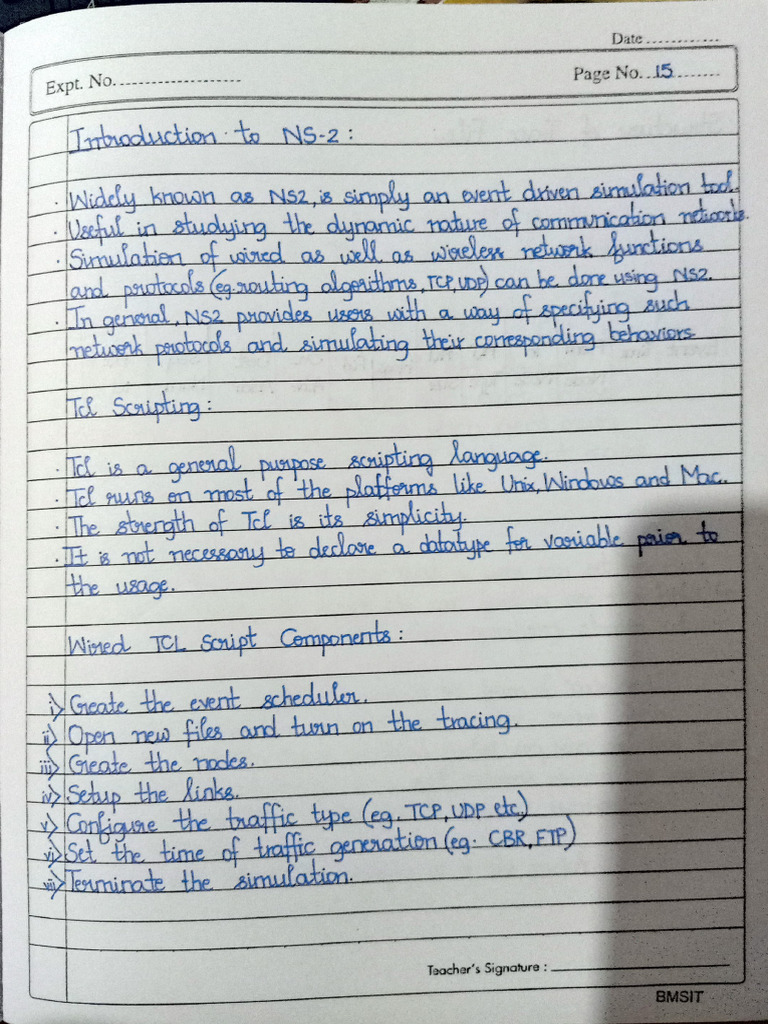 Date ............
Expt. No. ...................
Page No. 15 ........
Introduction to NS-2 :
· Widely known as NS2, is simply an event driven simulation tool.
· Useful in studying the dynamic nature of communication networks.
· Simulation of wired as well as wireless network functions
and protocols (eg. routing algorithms, TCP, UDP) can be done using NS2.
· In general, NS2 provides users with a way of specifying such
network protocols and simulating their corresponding behaviors.
Tcl Scripting :
· Tcl is a general purpose scripting language.
· Tcl runs on most of the platforms like Unix, Windows and Mac.
· The strength of Tcl is its simplicity.
· It is not necessary to declare a datatype for variable prior to
the usage.
Wired TCL Script Components :
i) Create the event scheduler.
ii) Open new files and turn on the tracing.
iii) Create the nodes.
iv) Setup the links.
v) Configure the traffic type (eg. TCP, UDP etc)
vi) Set the time of traffic generation (eg. CBR, FTP)
vii) Terminate the simulation.
Teacher's Signature :
BMSIT